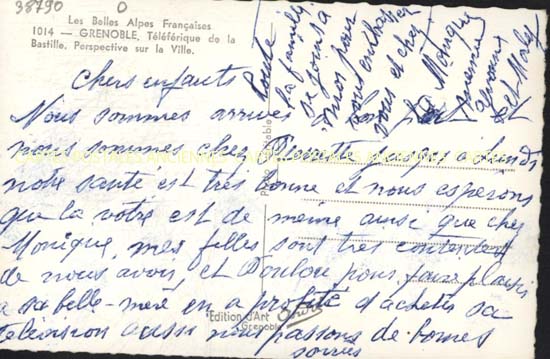 38790 0
Les Belles Alpes Françaises
1014 — GRENOBLE, Téléférique de la
Bastille. Perspective sur la Ville.
Toute
la famille
se joint à
moi pour
vous embrasser
vous et chez
Monique
Chers enfants
Nous sommes arrivés à bon port et
nous sommes chez Pierrette jusqu'à lundi
notre santé est très bonne et nous esperons
que la votre est de meme ainsi que chez
Monique, mes filles sont très contentes
de nous avoir, et Loulou pour faire plaisir
a sa belle-mère en a profité d'acheter sa
télévision aussi nous passons de bonnes
soirées
Edition d'Art
Grenoble
CARTES POSTALES ANCIENNES